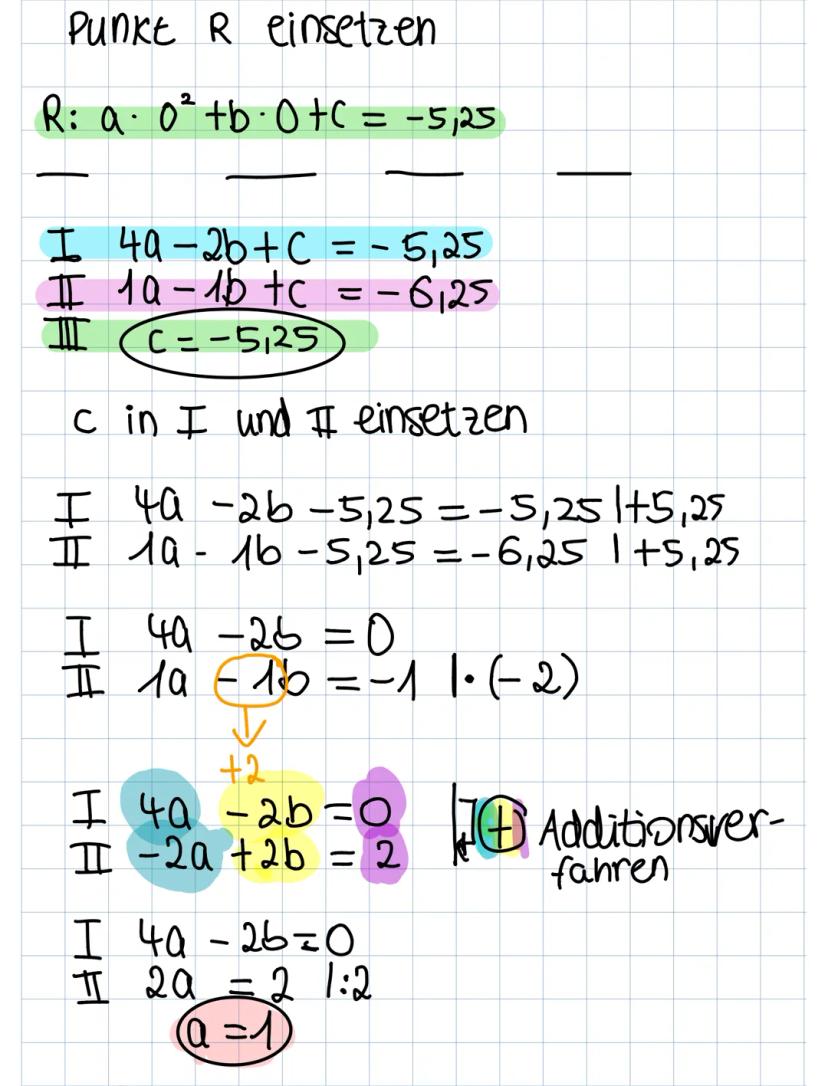 Punkt R einsetzen
R: a · 0² + b · 0 + c = -5,25
I 4a - 2b + c = - 5,25
II 1a - 1b + c = - 6,25
III c = -5,25
c in I und II einsetzen
I 4a - 2b - 5,25 = - 5,25 | +5,25
II 1a - 1b - 5,25 = -6,25 | +5,25
I 4a - 2b = 0
II 1a - 1b = -1 | · (-2)
+2
I 4a - 2b = 0
II -2a + 2b = 2
+ Additionsver-
fahren
I 4a - 2b = 0
II 2a = 2 | :2
a = 1